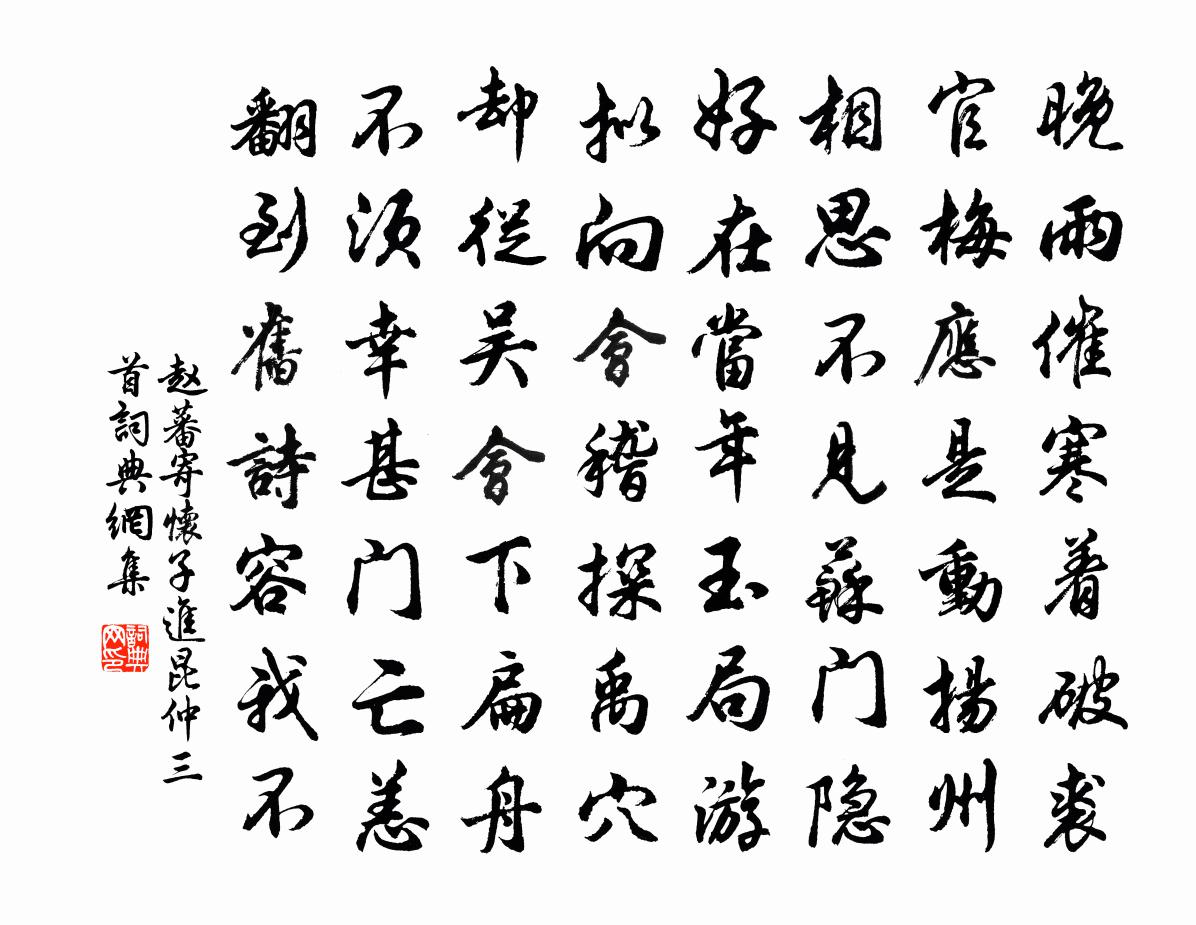 晚雨催寒着破裘
官梅應是動揚州
相思不見蘇門隐
好在當年玉局游
拟向會稽探禹穴
却從吴會下扁舟
不須幸甚門亡恙
翻到舊詩容我不
赵蕃寄懷子進昆仲三
首詞典網集
詞典
网印